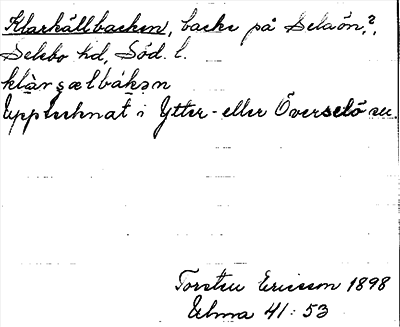 Klarkällbacken, backe på Selaön?,
Selebo hd, Söd. l.
klàrꞔælbákən
Upptecknat i Ytter- eller Överselö sn.
Torsten Ericsson 1898
Ulma 41:53